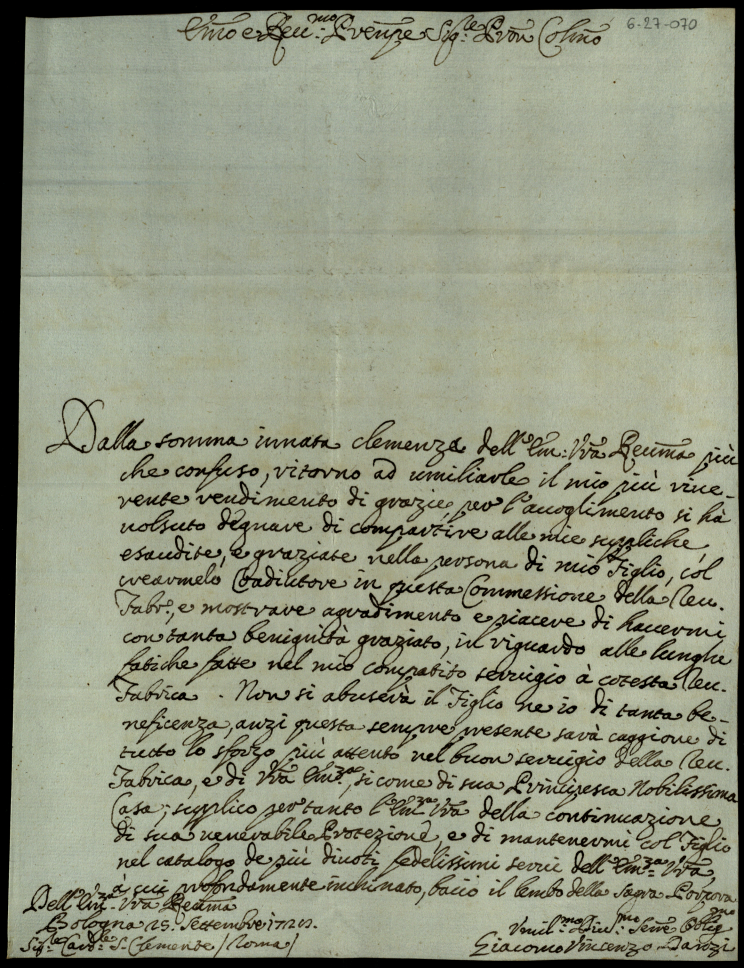 6-27-070
Emo e Reu.mo Prenpe Sig.re Pron Colmo
Dalla somma innata clemenza dell'Em: Vrã Reumã più
che confuso, ritorno ad umiliarle il mio più rive-
rente rendimento di grazie, per l'accoglimento si hà
uolsuto degnare di compartire alle mie suppliche
esaudite, e graziate nella persona di mio Figlio, col
crearmelo Coadiutore in questa Commessione della Reu.
Fabr.a, e mostrare agradimento e piacere di hauermi
con tanta benignità graziato, in riguardo alle lunghe
fatiche fatte nel mio compatito seruigio à cotesta Reu.
Fabrica. Non si abuserà il Figlio ne io di tanta be-
neficenza, anzi questa sempre presente sarà caggione di
tutto lo sforzo più attento nel buon seruigio della Reu.
Fabrica, e di Vrã Em.za, si come di sua Principesca Nobilissima
Casa; supplico per tanto l'Em.za Vrã della continuazione
di sua uenerabile Protezione, e di mantenermi col Figlio
nel catalogo de più diuoti, fedelissimi serui dell'Em.za Vrã,
à cui profondamente inchinato, bacio il lembo della Sagra Porpora
Dell'Em.za Vrã Reumã
Bologna 25. Settembre
Sig.re Card.le S. Clemente / Roma /
Umil.mo Diu.mo Serre Oblig.mo
Giacomo Vincenzo